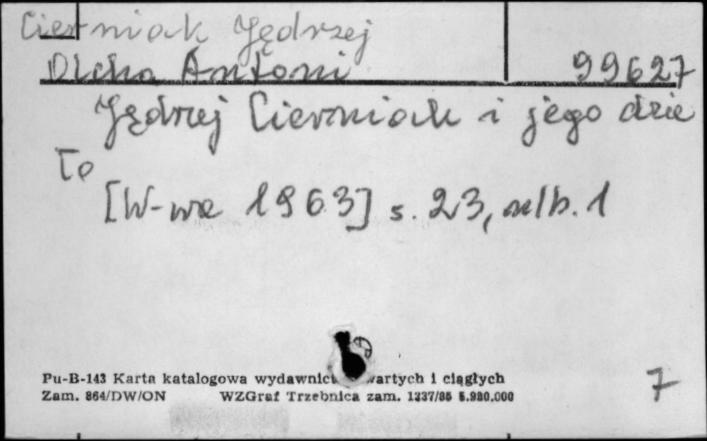 Cierniak Jędrzej
Olcha Antoni 99627
Jędrzej Cierniak i jego dzie
ło
[W-wa 1963] s. 23, nlb. 1
Pu-B-143 Karta katalogowa wydawnic wartych i ciągłych
Zam. 864/DW/ON WZGraf Trzebnica zam. 1337/85 5.980.000
7